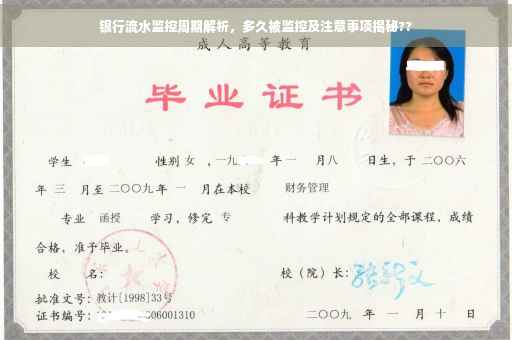 银行流水监控周期解析，多久被监控及注意事项揭秘??
成人高等教育
毕业证书
学生 性别 女 ，一九 年 一 月 八 日生，于 二〇〇六
年 三 月至 二〇〇九 年 一 月在本校 财务管理
专业 函授 学习，修完 专 科教学计划规定的全部课程，成绩
合格，准予毕业。
校 名： 校（院）长：
批准文号：教计[1998]33号
证书编号： 06001310 二〇〇九 年 一 月 十 日